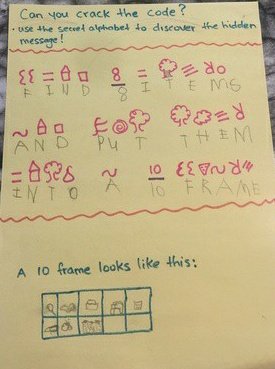 Can you crack the code?
• use the secret alphabet to discover the hidden
message!
8
8
FIND ITEMS
AND PUT THEM
10
INTO A 10 FRAME
A 10 frame looks like this: